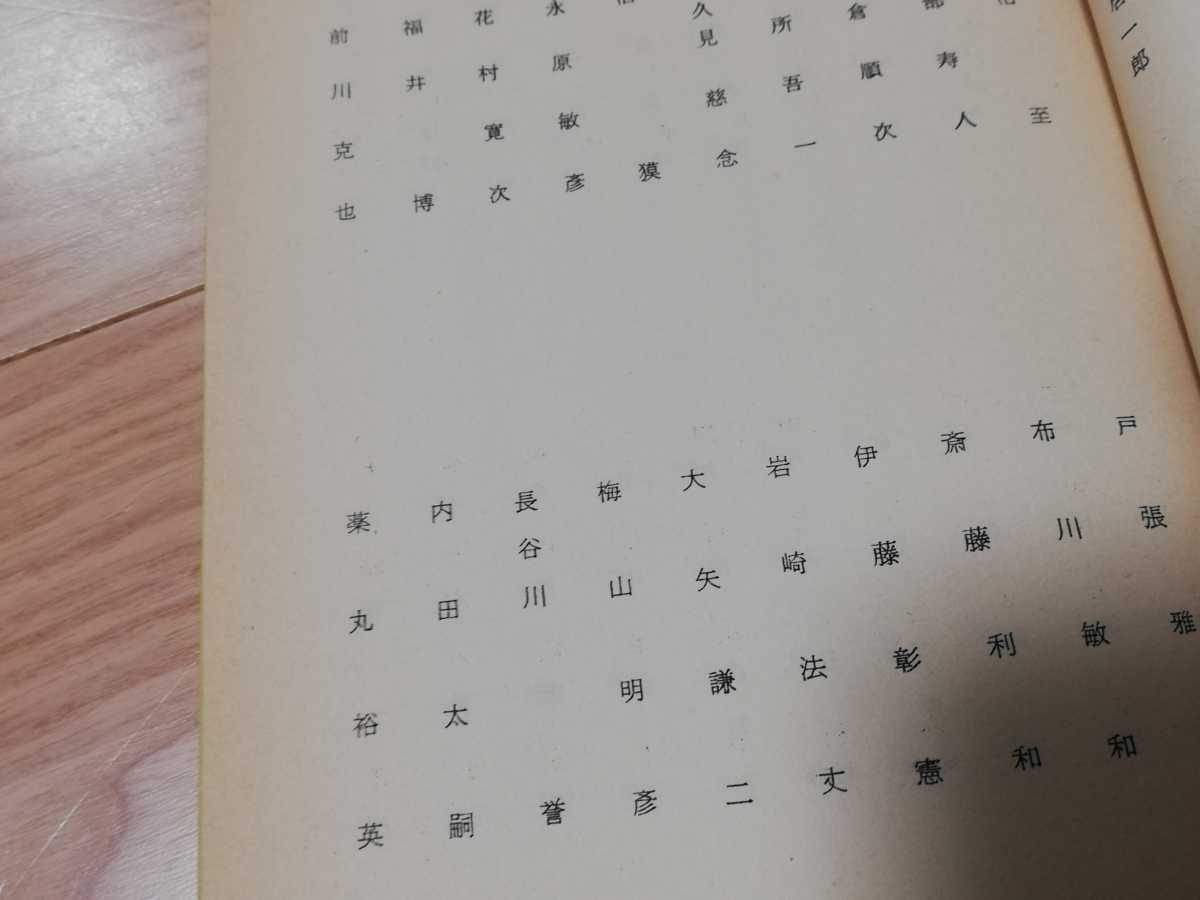 一郎
至
寿人
倉順次
所吾一
久見慈念
獏
永原敏彦
花村寛次
福井博
前川克也
戸張雅
布川敏和
斎藤利和
伊藤彰憲
岩崎法丈
大矢謙二
梅山明彦
長谷川誉
内田太嗣
薬丸裕英